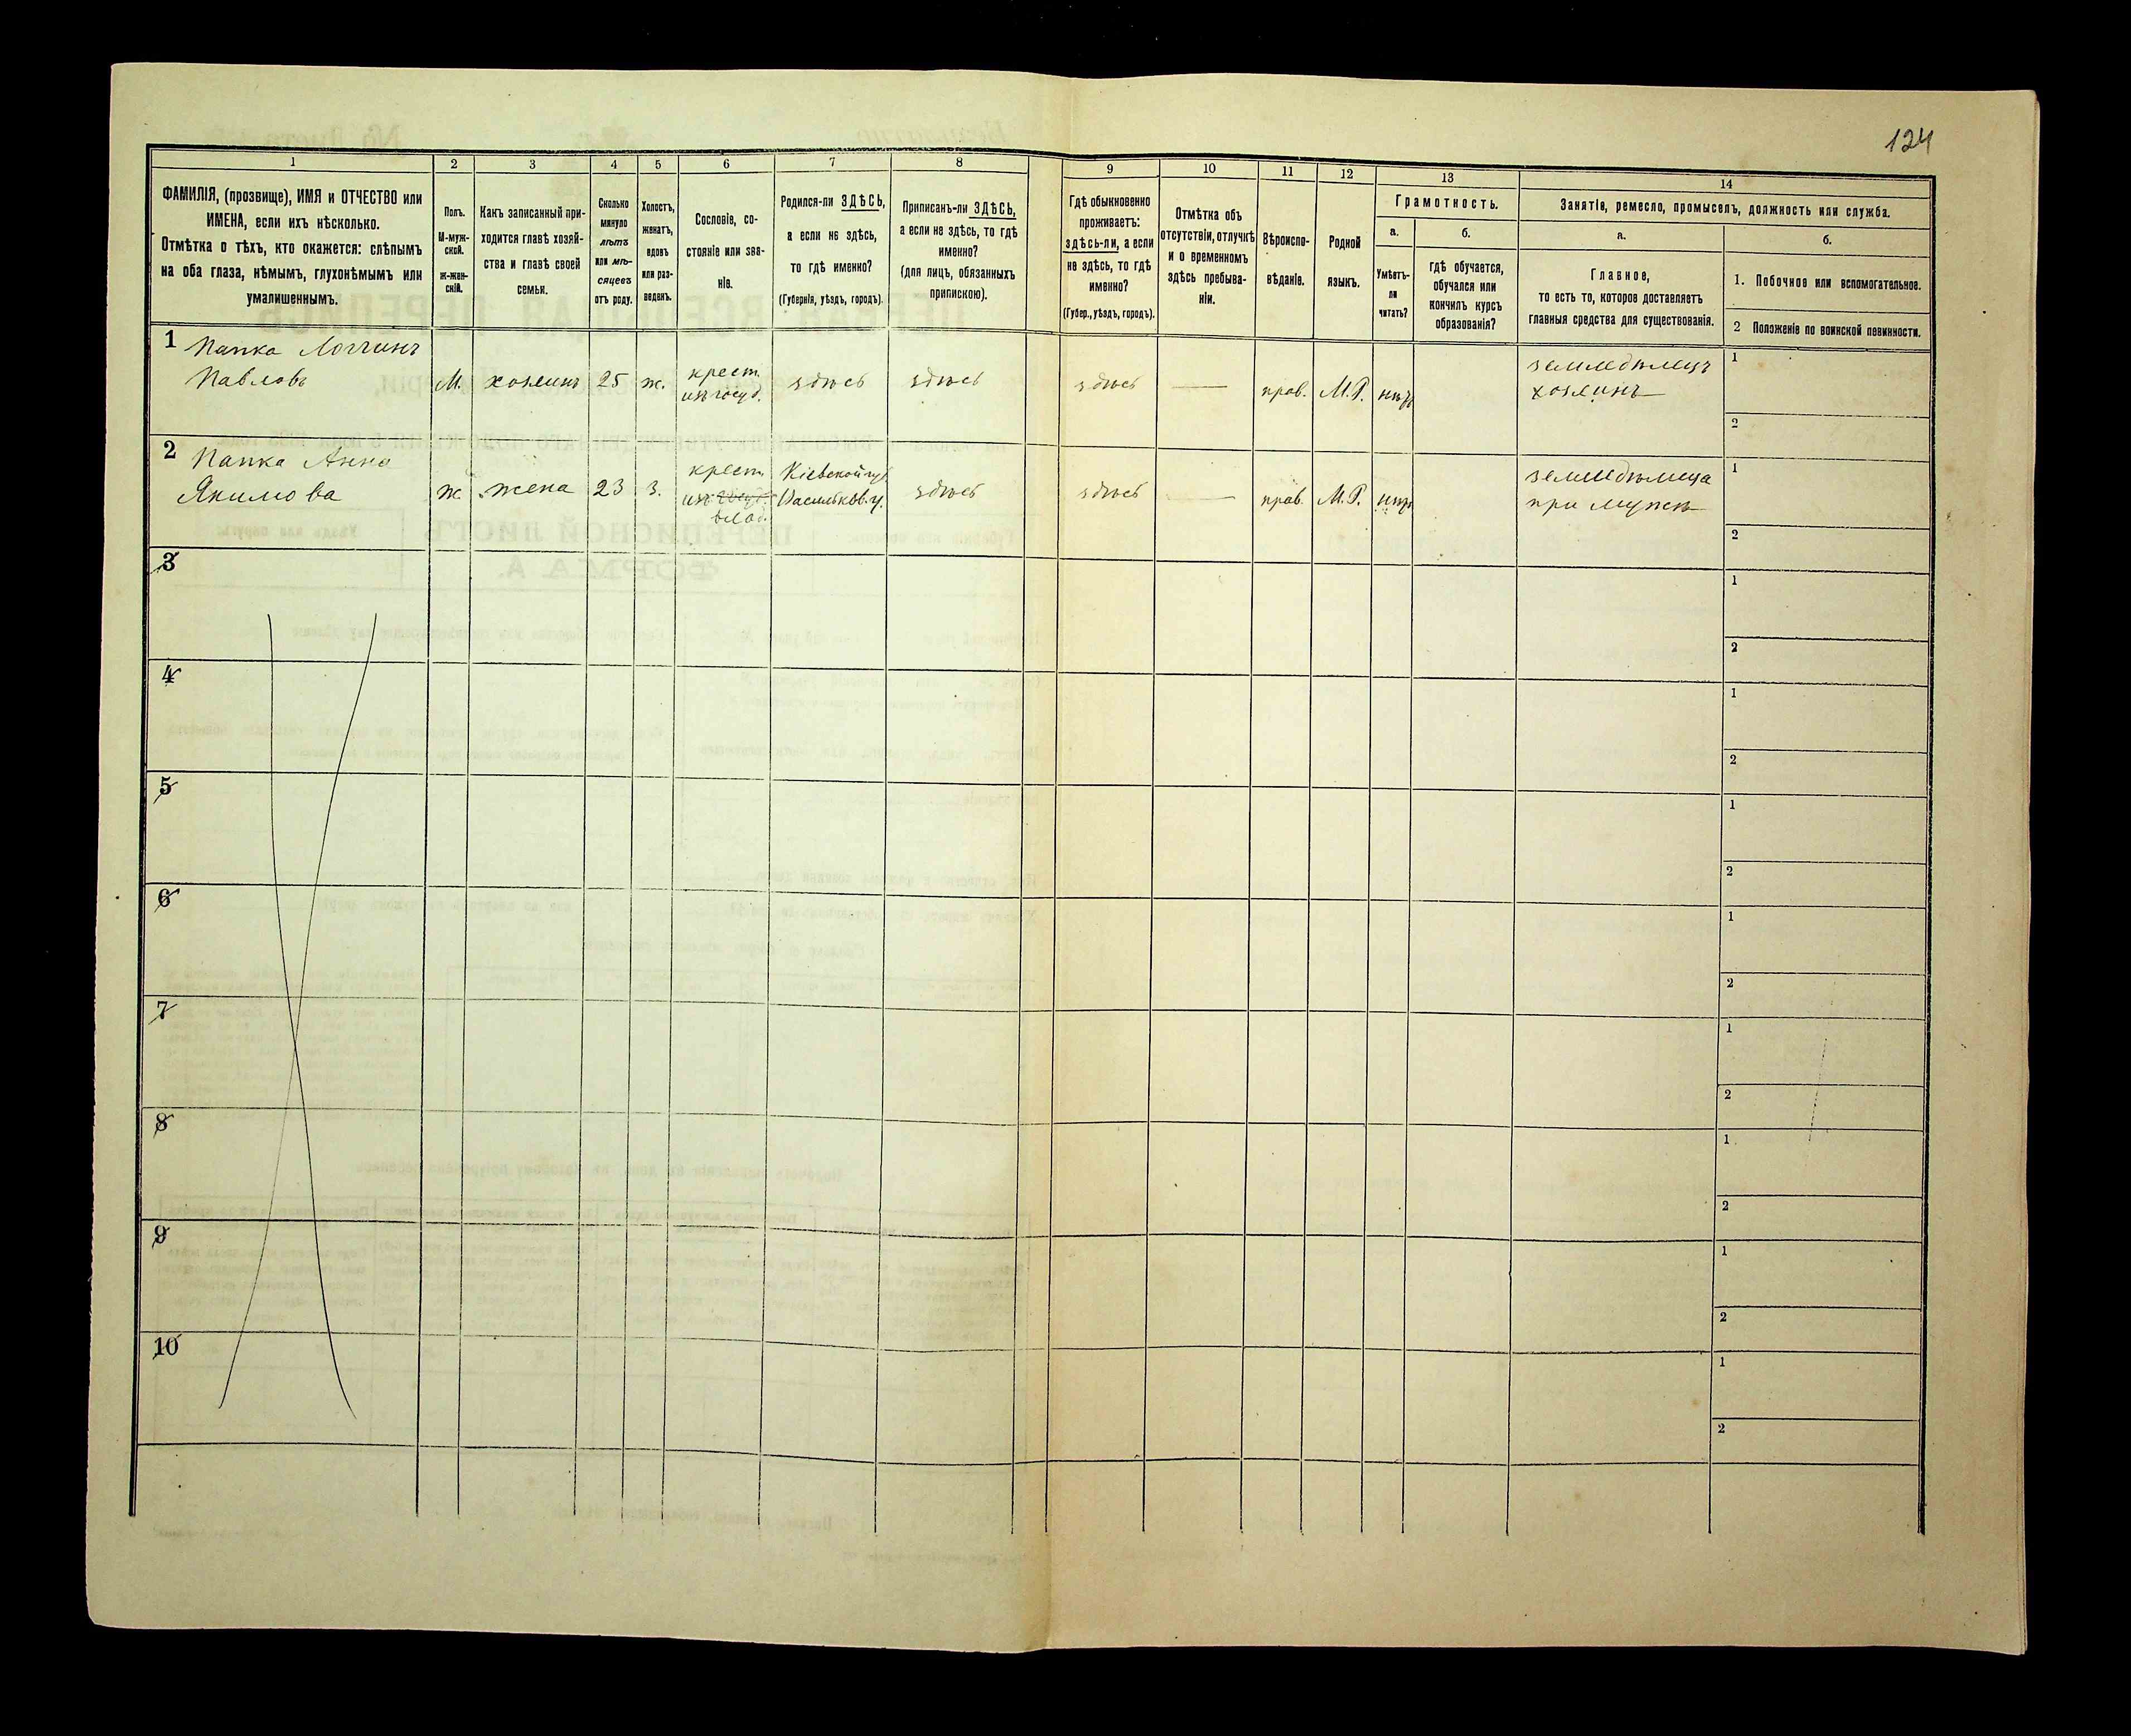 124
1
2
3
4
5
6
7
8
9
10
11
12
13
14
ФАМИЛІЯ, (прозвище), ИМЯ и ОТЧЕСТВО или
ИМЕНА, если ихъ нѣсколько.
Отмѣтка о тѣхъ, кто окажется: слѣпымъ
на оба глаза, нѣмымъ, глухонѣмымъ или
умалишеннымъ.
Полъ.
М-муж-
ской.
ж-жен-
скій.
Какъ записанный при-
ходится главѣ хозяй-
ства и главѣ своей
семьи.
Сколько
минуло
лѣтъ
или мѣ-
сяцевъ
отъ роду.
Холостъ,
женатъ,
вдовъ
или раз-
веденъ.
Сословіе, со-
стояніе или зва-
ніе.
Родился-ли ЗДѢСЬ,
а если не здѣсь,
то гдѣ именно?
(Губернія, уѣздъ, городъ).
Приписанъ-ли ЗДѢСЬ,
а если не здѣсь, то гдѣ
именно?
(для лицъ, обязанныхъ
припискою).
Гдѣ обыкновенно
проживаетъ:
здѣсь-ли, а если
не здѣсь, то гдѣ
именно?
(Губер., уѣздъ, городъ).
Отмѣтка объ
отсутствіи, отлучкѣ
и о временномъ
здѣсь пребыва-
ніи.
Вѣроиспо-
вѣданіе.
Родной
языкъ.
Грамотность.
а.
Умѣетъ-
ли
читать?
б.
гдѣ обучается,
обучался или
кончилъ курсъ
образованія?
Занятіе, ремесло, промыселъ, должность или служба.
а.
Главное,
то есть то, которое доставляетъ
главныя средства для существованія.
б.
1. Побочное или вспомогательное.
2 Положеніе по воинской повинности.
1 Папка Логгинъ
Павловъ
М.
хозяинъ
25
ж.
крест.
изъ госуд.
здѣсь
здѣсь
здѣсь
—
прав.
М.Р.
нѣтъ
земледѣлецъ
хозяинъ
1
2
2 Папка Анна
Якимова
ж
жена
23
з.
крест.
изъ госуд.
влад.
Кіевской губ.
Васильков. у.
здѣсь
здѣсь
—
прав.
М.Р.
нѣтъ
земледѣлица
при мужѣ
1
2
3
1
2
4
1
2
5
1
2
6
1
2
7
1
2
8
1
2
9
1
2
10
1
2